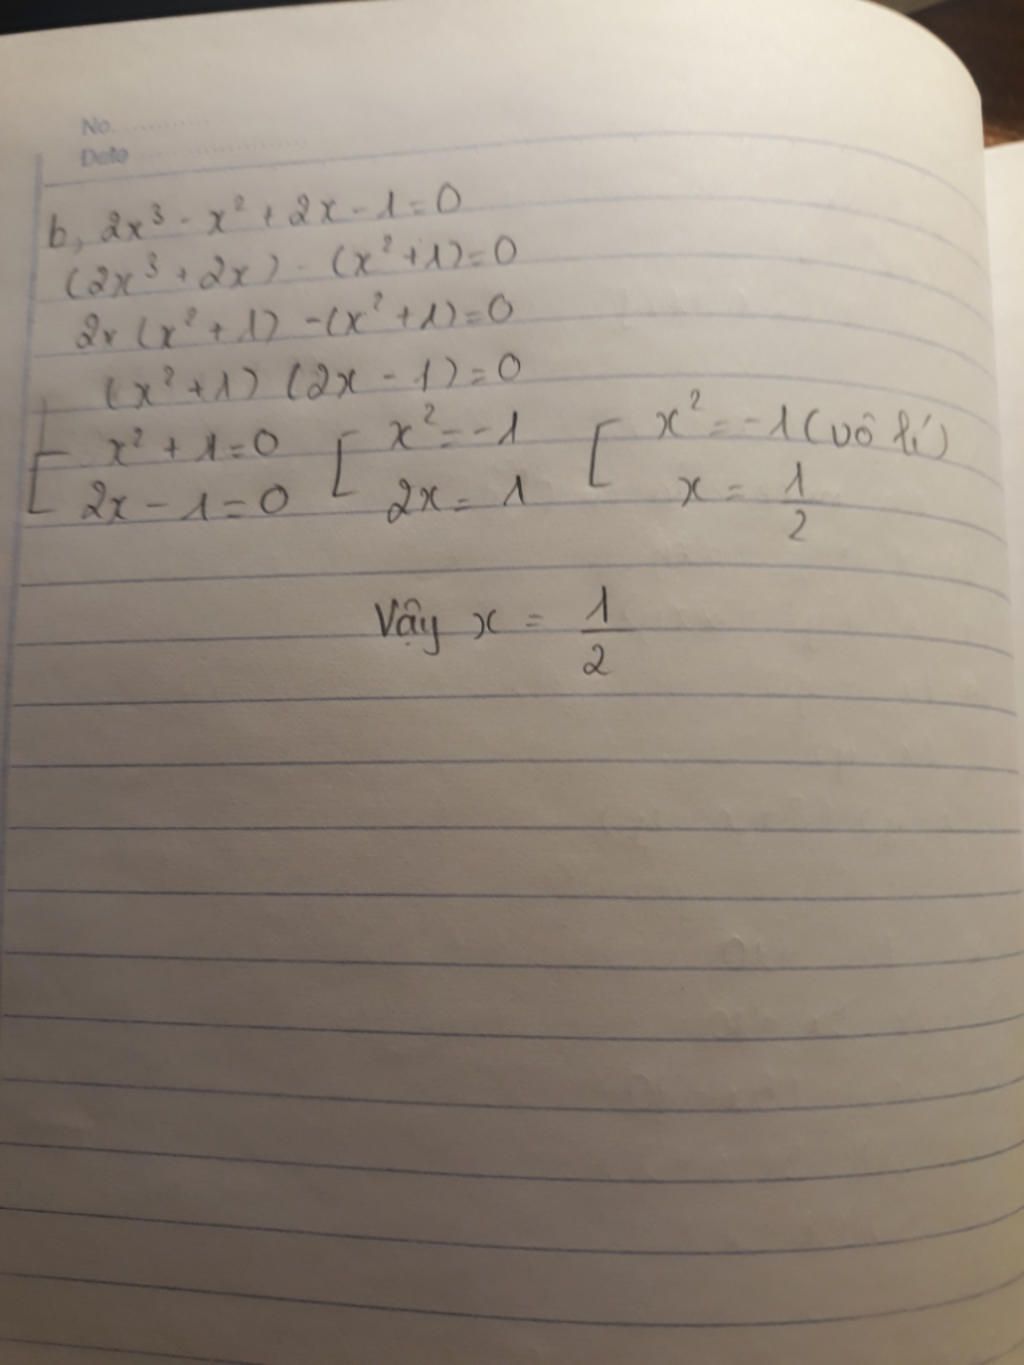 No.
Date
b, 2x³ - x² + 2x - 1 = 0
(2x³ + 2x) - (x² + 1) = 0
2x (x² + 1) - (x² + 1) = 0
(x² + 1) (2x - 1) = 0
[ x² + 1 = 0 [ x² = -1 [ x² = -1 (vô lí)
2x - 1 = 0 2x = 1 x = 1/2
Vậy x = 1/2